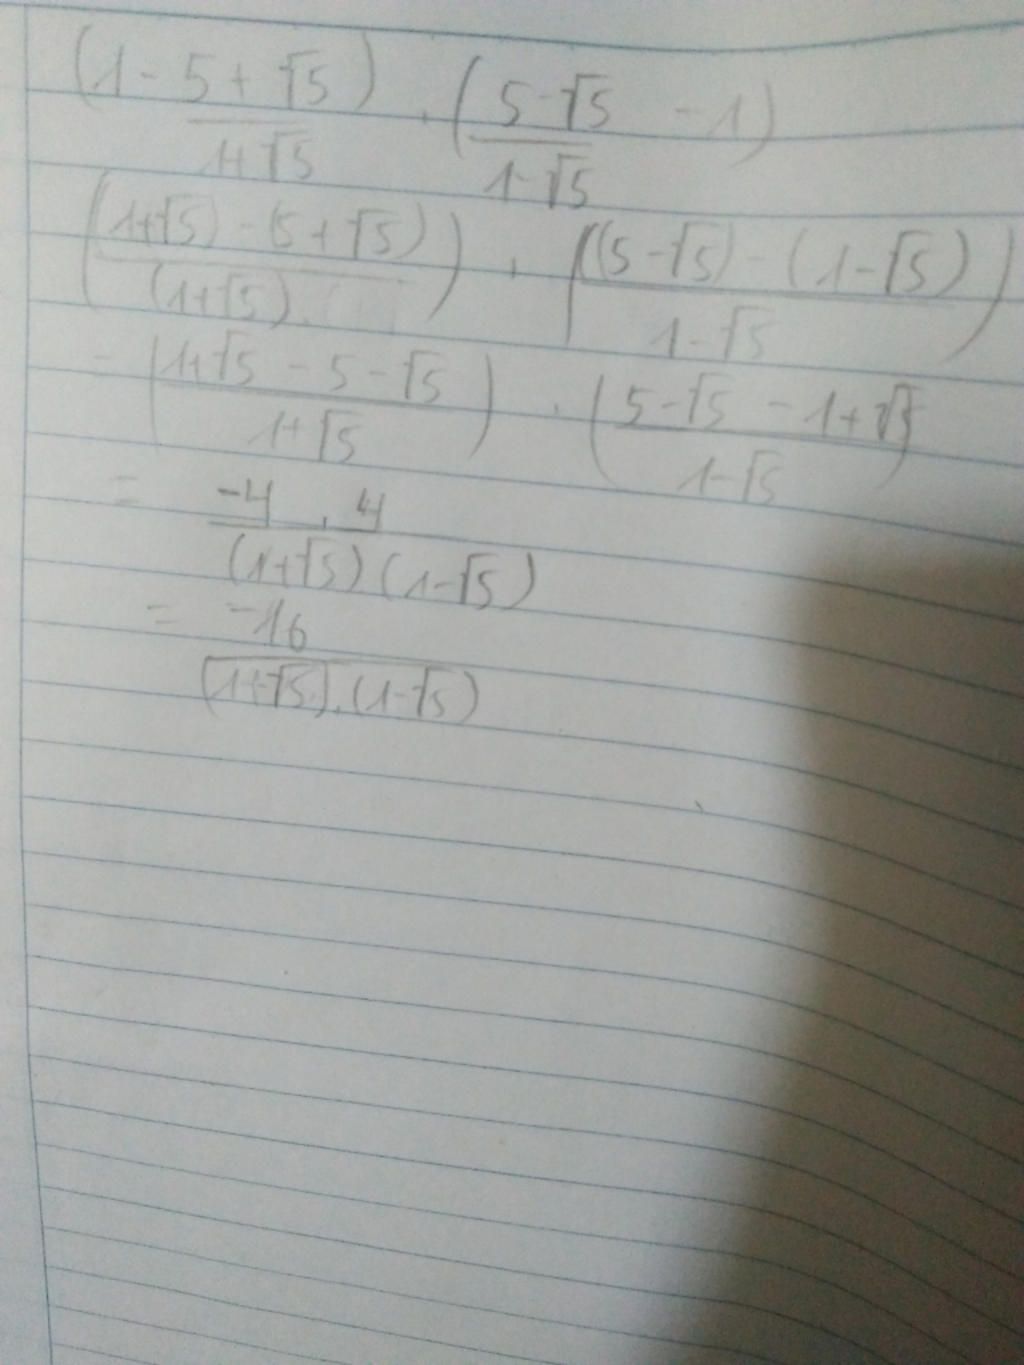 (1 - 5 + √5) . (5 - √5 - 1)
1 + √5 1 - √5
((1 + √5) - (5 + √5)) . ((5 - √5) - (1 - √5))
(1 + √5) 1 - √5
= (1 + √5 - 5 - √5) . (5 - √5 - 1 + √5)
1 + √5 1 - √5
= -4 . 4
(1 + √5) (1 - √5)
= -16
(1 + √5) . (1 - √5)